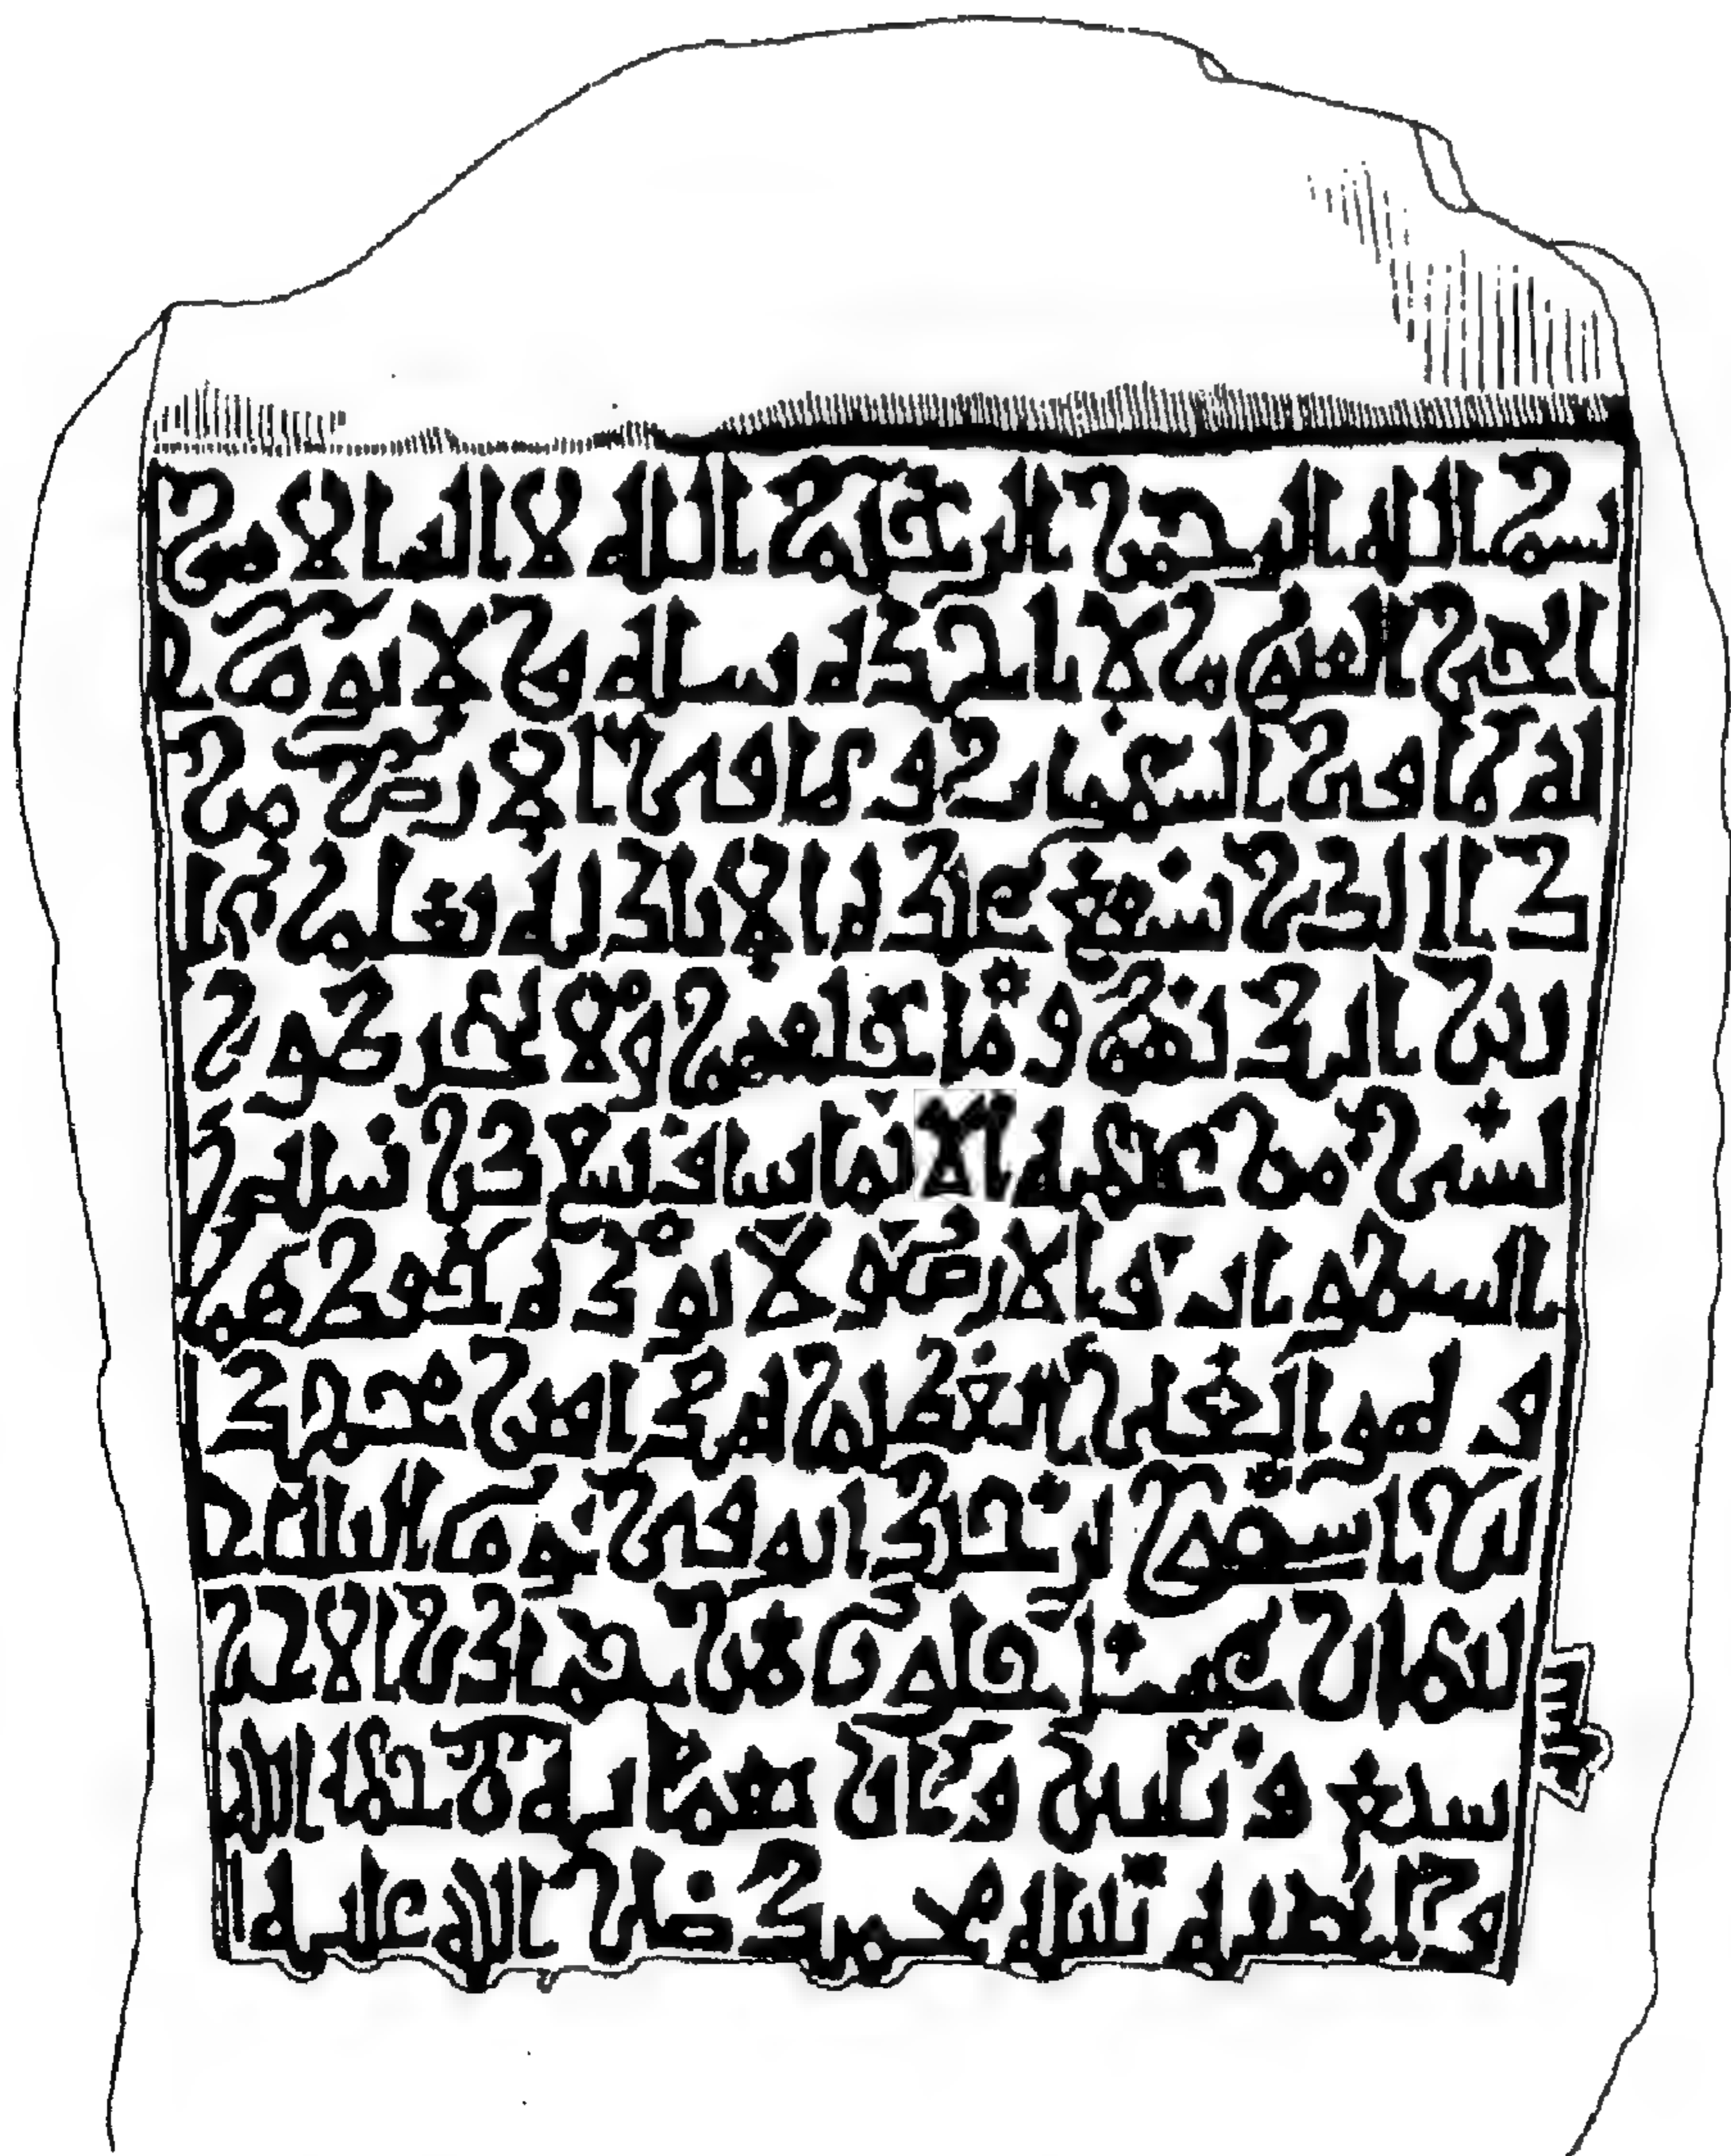 بسم الله الرحمن الرحيم الله لا اله الا هو
الحي القيوم لا تاخذه سنه ولا نوم
له ما في السموات وما في الارض من
ذا الذي يشفع عنده الا باذنه يعلم ما
بين ايديهم وما خلفهم ولا يحيطون
بشي من علمه الا بما شا وسع كرسيه
السموات والارض ولا يوده حفظهما
وهو العلي العظيم هذا قبر محمد
بن اسحق توفي يوم الثلثا
لثمان خلون من جمادى الاخر
سنة وثلثين رحمه الله
نبيه محمد صلى الله عليه